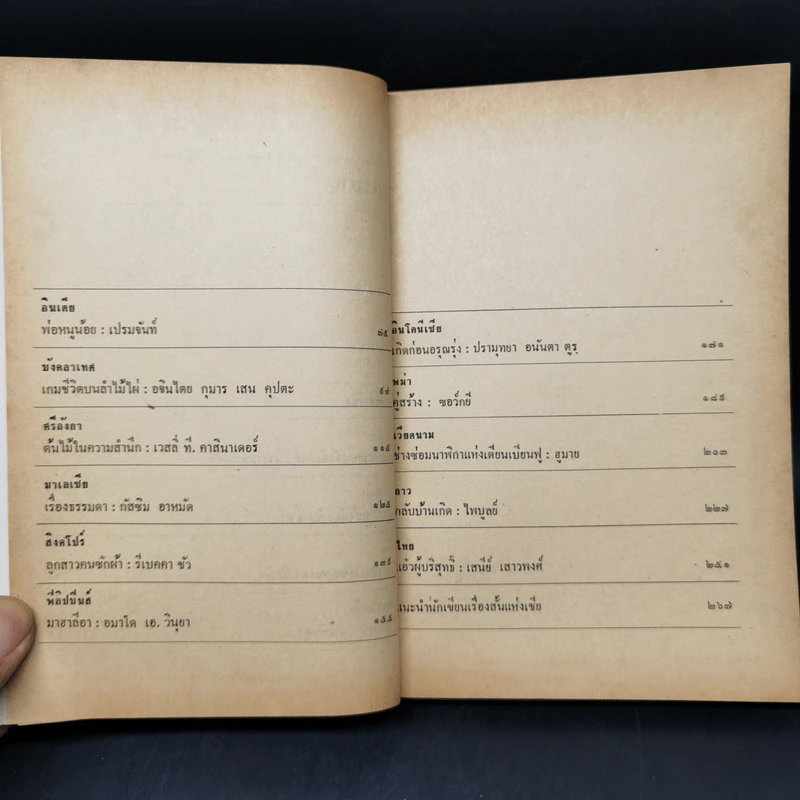 อินเดีย
พ่อหนูน้อย : เปรมจันท์ ๘๕
บังคลาเทศ
เกมชีวิตบนลำไม้ไผ่ : อจินไตย กุมาร เสน คุปตะ ๙๗
ศรีลังกา
ต้นไม้ในความสำนึก : เวสลี่ ที. คาสินาเดอร์ ๑๑๕
มาเลเซีย
เรื่องธรรมดา : กัสซิม อาหมัด ๑๒๕
สิงคโปร์
ลูกสาวคนซักผ้า : รีเบคคา ชัว ๑๓๙
ฟิลิปปินส์
มาฮาลีอา : อมาโด เอ. วินุยา ๑๕๕
อินโดนีเซีย
เกิดก่อนอรุณรุ่ง : ปรามุทยา อนันตา ตูรฺ ๑๗๑
พม่า
คู่สร้าง : ซอว์กยี ๑๘๙
เวียดนาม
ช่างซ่อมนาฬิกาแห่งเดียนเบียนฟู : ฮูมาย ๒๐๓
ลาว
กลับบ้านเกิด : ไพบูลย์ ๒๒๗
ไทย
แอ๋วผู้บริสุทธิ์ : เสนีย์ เสาวพงศ์ ๒๕๑
แนะนำนักเขียนเรื่องสั้นแห่งเอเชีย ๒๖๗